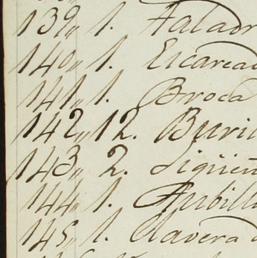 139,, 1. Taladr
140,, 1. Escaread
141,, 1. Broca
142,, 12. Buril
143,, 2. Sigüeñ
144,, 1. Aubill
145,, 1. Clavera d